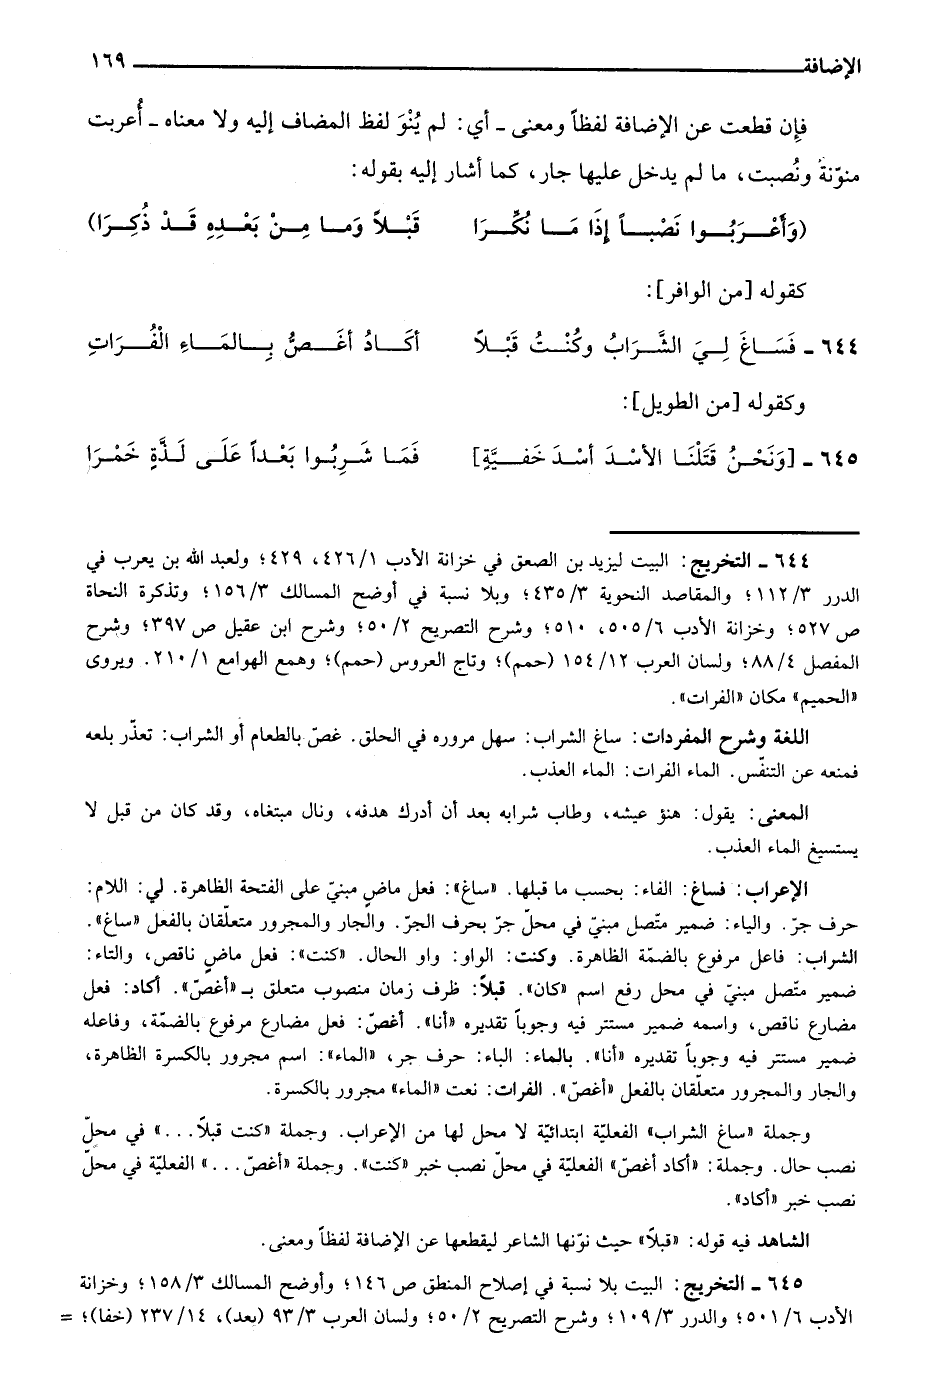 الإضافة ١٦٩
فإن قطعت عن الإضافة لفظاً ومعنى ـ أي: لم يُنْوَ لفظ المضاف إليه ولا معناه ـ أُعربت
منوّنةً ونُصبت، ما لم يدخل عليها جار، كما أشار إليه بقوله:
(وَأَعْـرَبُـوا نَصْبـاً إِذَا مَـا نُكِّـرَا قَبْـلاً وَمـا مِـنْ بَعْـدِهِ قَـدْ ذُكِـرَا)
كقوله [من الوافر]:
٦٤٤ ـ فَسَـاغَ لِـيَ الشَّـرَابُ وكُنْـتُ قَبْـلاً أكَـادُ أغَـصُّ بِـالمَـاءِ الْفُـرَاتِ
وكقوله [من الطويل]:
٦٤٥ ـ [وَنَحْـنُ قَتَلْنَـا الأسْـدَ أسْـدَ خَفـيَّةٍ] فَمَـا شَـرِبُـوا بَعْـداً عَلَـى لَـذَّةٍ خَمْـرَا
٦٤٤ ـ التخريج: البيت ليزيد بن الصعق في خزانة الأدب ١/ ٤٢٦، ٤٢٩؛ ولعبد الله بن يعرب في
الدرر ٣/ ١١٢؛ والمقاصد النحوية ٣/ ٤٣٥؛ وبلا نسبة في أوضح المسالك ٣/ ١٥٦؛ وتذكرة النحاة
ص ٥٢٧؛ وخزانة الأدب ٦/ ٥٠٥، ٥١٠؛ وشرح التصريح ٢/ ٥٠؛ وشرح ابن عقيل ص ٣٩٧؛ وشرح
المفصل ٤/ ٨٨؛ ولسان العرب ١٢/ ١٥٤ (حمم)؛ وتاج العروس (حمم)؛ وهمع الهوامع ١/ ٢١٠. ويروى
«الحميم» مكان «الفرات».
اللغة وشرح المفردات: ساغ الشراب: سهل مروره في الحلق. غصّ بالطعام أو الشراب: تعذّر بلعه
فمنعه عن التنفّس. الماء الفرات: الماء العذب.
المعنى: يقول: هنؤ عيشه، وطاب شرابه بعد أن أدرك هدفه، ونال مبتغاه، وقد كان من قبل لا
يستسيغ الماء العذب.
الإعراب: فساغ: الفاء: بحسب ما قبلها. «ساغ»: فعل ماضٍ مبنيّ على الفتحة الظاهرة. لي: اللام:
حرف جرّ. والياء: ضمير متّصل مبنيّ في محلّ جرّ بحرف الجرّ. والجار والمجرور متعلّقان بالفعل «ساغ».
الشراب: فاعل مرفوع بالضمّة الظاهرة. وكنت: الواو: واو الحال. «كنت»: فعل ماضٍ ناقص، والتاء:
ضمير متّصل مبنيّ في محل رفع اسم «كان». قبلاً: ظرف زمان منصوب متعلق بـ«أغصّ». أكاد: فعل
مضارع ناقص، واسمه ضمير مستتر فيه وجوباً تقديره «أنا». أغصّ: فعل مضارع مرفوع بالضمّة، وفاعله
ضمير مستتر فيه وجوباً تقديره «أنا». بالماء: الباء: حرف جر، «الماء»: اسم مجرور بالكسرة الظاهرة،
والجار والمجرور متعلّقان بالفعل «أغصّ». الفرات: نعت «الماء» مجرور بالكسرة.
وجملة «ساغ الشراب» الفعليّة ابتدائيّة لا محل لها من الإعراب. وجملة «كنت قبلاً...» في محلّ
نصب حال. وجملة: «أكاد أغصّ» الفعليّة في محلّ نصب خبر «كنت». وجملة «أغصّ...» الفعليّة في محلّ
نصب خبر «أكاد».
الشاهد فيه قوله: «قبلاً» حيث نوّنها الشاعر ليقطعها عن الإضافة لفظاً ومعنى.
٦٤٥ ـ التخريج: البيت بلا نسبة في إصلاح المنطق ص ١٤٦؛ وأوضح المسالك ٣/ ١٥٨؛ وخزانة
الأدب ٦/ ٥٠١؛ والدرر ٣/ ١٠٩؛ وشرح التصريح ٢/ ٥٠؛ ولسان العرب ٣/ ٩٣ (بعد)، ١٤/ ٢٣٧ (خفا)؛ =